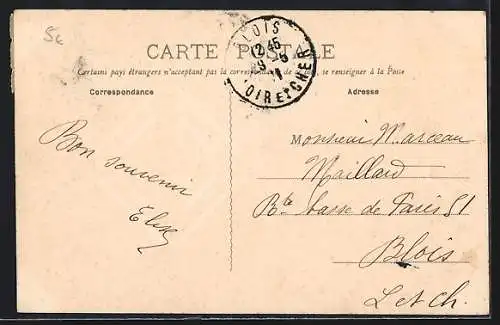 5c
CARTE POSTALE
BLOIS
12 45
9 - 5
11
LOIR ET CHER
Certains pays étrangers n'acceptant pas la correspondance de se renseigner à la Poste
Correspondance
Adresse
Bon souvenir
Monsieur Marceau
Maillard
Rte basse de Paris 51
Blois
L et Ch.